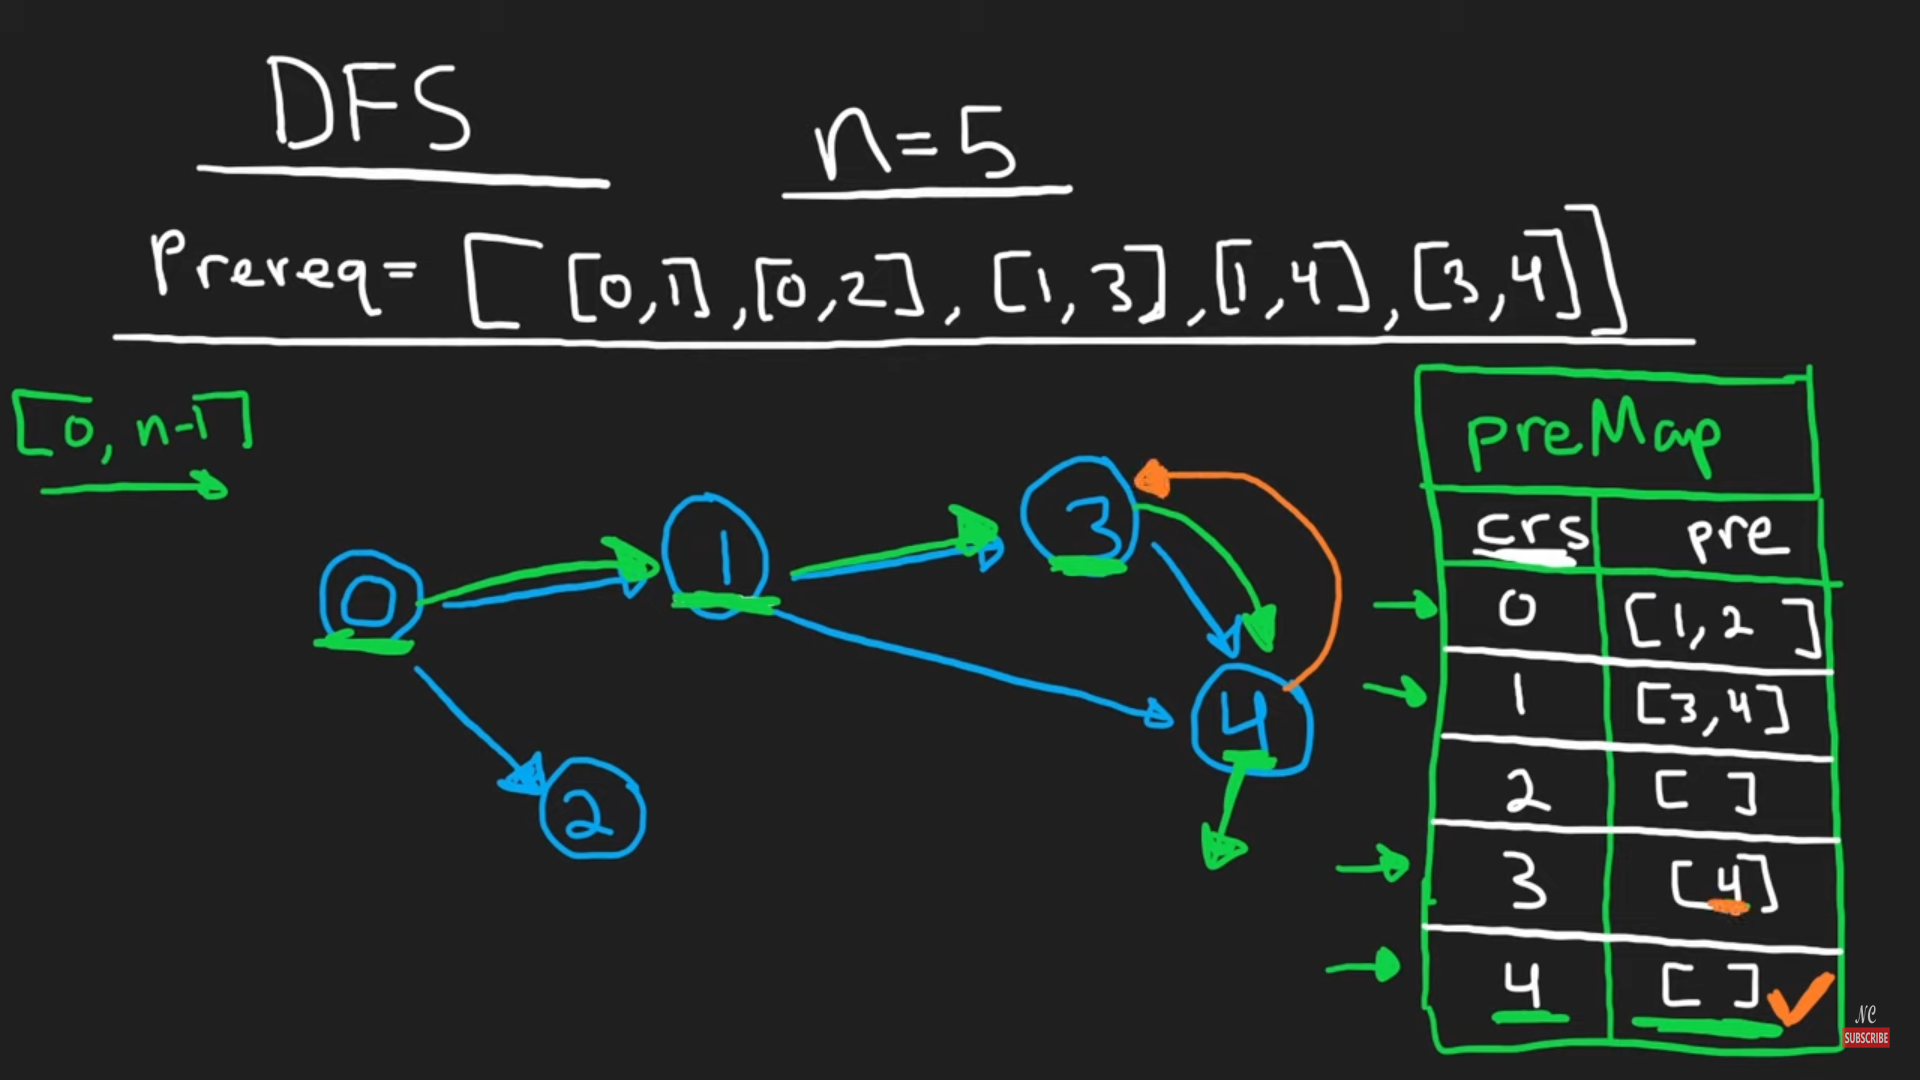 DFS
n=5
Prereq= [ [0,1],[0,2], [1,3],[1,4],[3,4]]
[0, n-1]
preMap
crs pre
0 [1,2 ]
1 [3,4]
2 [ ]
3 [4]
4 [ ]
0
1
3
4
2
NC
SUBSCRIBE